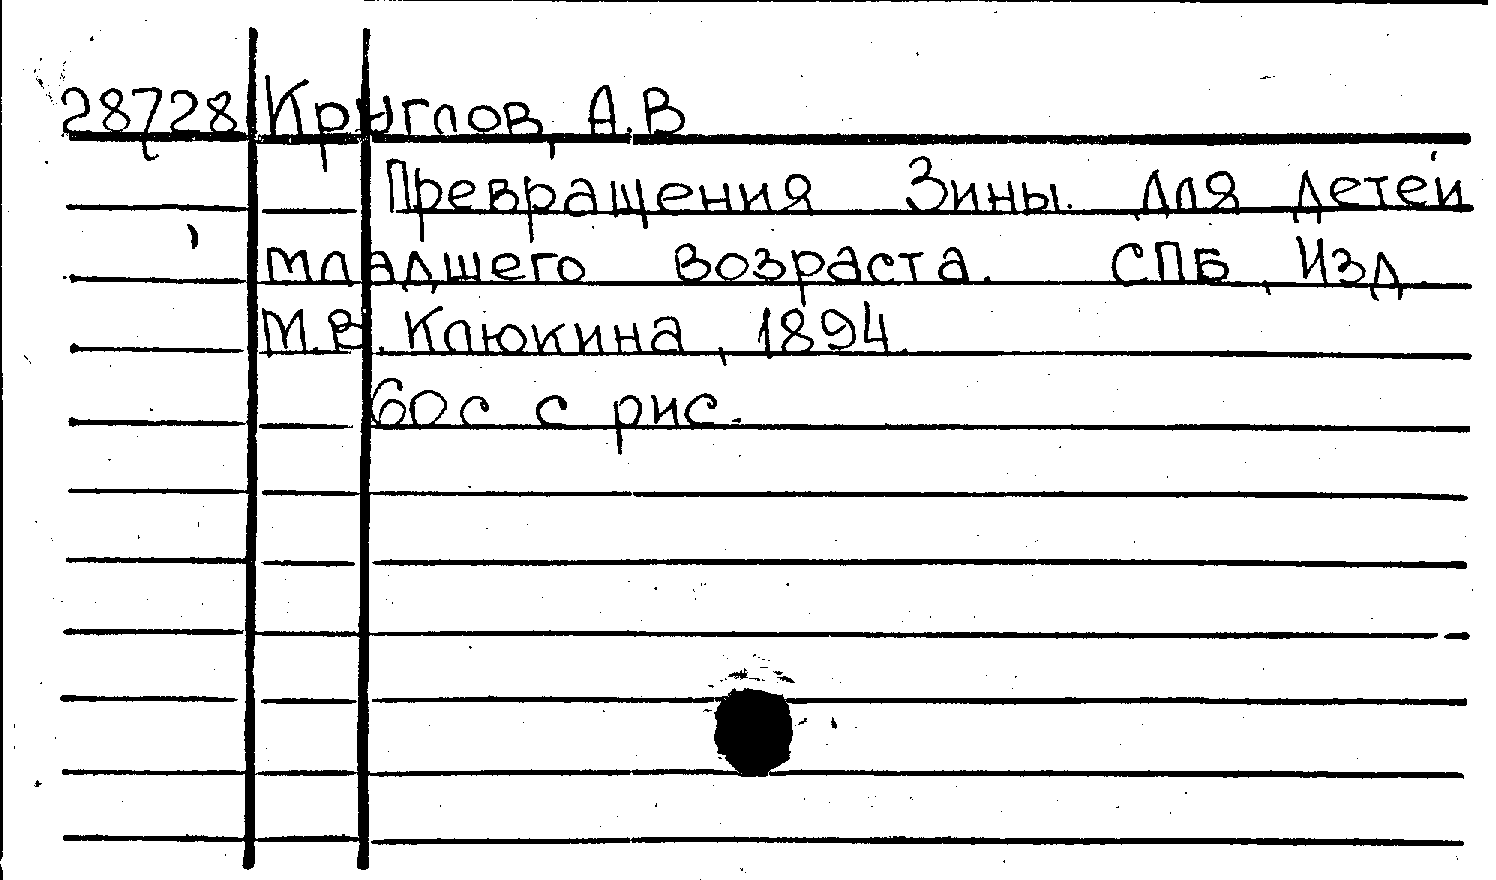 28728 Круглов, А.В
Превращения Зины. Для детей
младшего возраста. СПБ, Изд.
М.В. Клюкина, 1894.
60с с рис.